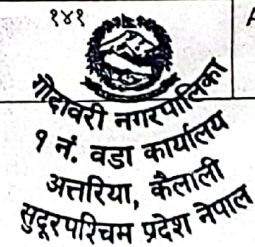 १४१
गोदावरी नगरपालिका
१ नं. वडा कार्यालय
अत्तरिया, कैलाली
सुदूरपश्चिम प्रदेश नेपाल